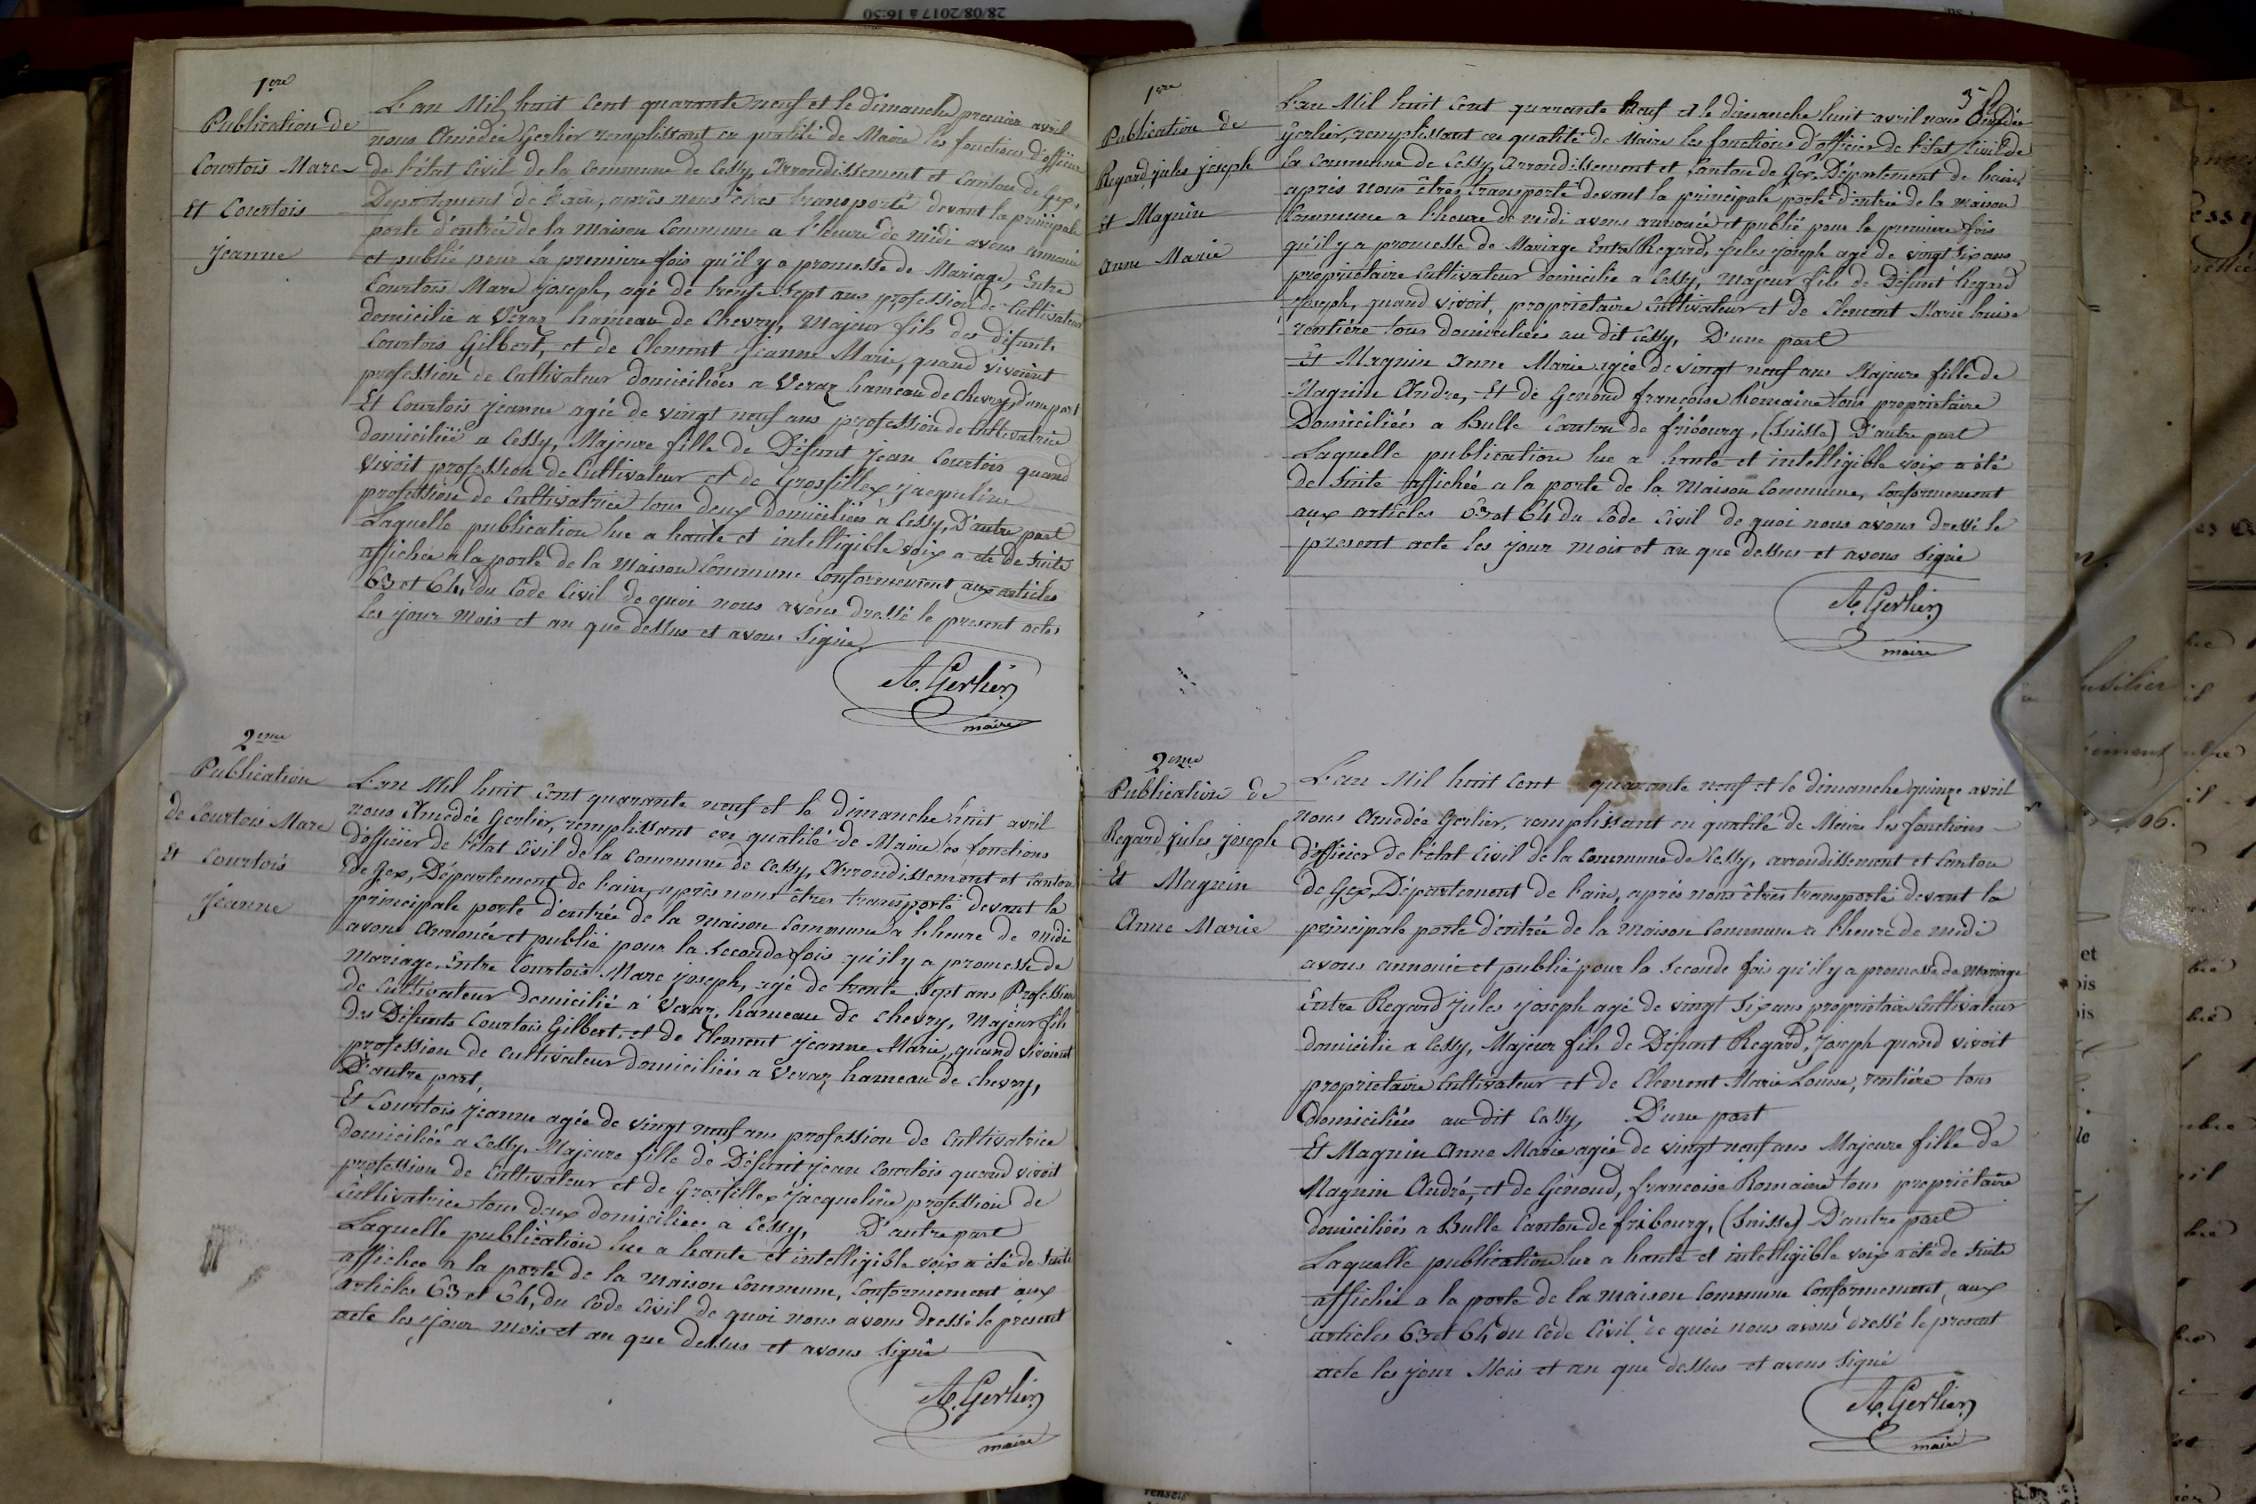 28/08/2017 à 16:50
1ere
Publication de
Courtois Marc
Et Courtois
Jeanne
L'an Mil huit Cent quarante neuf et le dimanche premier avril
nous Amédée Gerlier remplissant en qualité de Maire les fonctions d'officier
de l'état Civil de la Commune de Cessy, Arrondissement et Canton de Gex,
Département de l'ain, après nous êtres transporté devant la principale
porte d'entrée de la Maison Commune a l'heure de midi avons annoncé
et publié pour la premiere fois qu'il y a promesse de Mariage, Entre
Courtois Marc Joseph, agé de trente sept ans profession de Cultivateur
domicilié a Veraz hameau de Chevry, Majeur fils des défunts
Courtois Gilbert, et de Clement Jeanne Marie, quand vivoint
profession de Cultivateur domiciliés a Veraz hameau de Chevry, d'une part
Et Courtois Jeanne agée de vingt neuf ans profession de Cultivatrice
domiciliée a Cessy, Majeure fille de Défunt Jean Courtois quand
vivoit profession de Cultivateur et de Grosfillex Jacqueline
profession de Cultivatrice tous deux domiciliés à Cessy, D'autre part
Laquelle publication lue a haute et intelligible voix a été de suite
affichée a la porte de la Maison Commune Conformement aux articles
63 et 64, du Code Civil de quoi nous avons dressé le present acte
les jour Mois et an que dessus et avons Signé
A. Gerlier
maire
2eme
Publication
de Courtois Marc
Et Courtois
Jeanne
L'an Mil huit Cent quarante neuf et le dimanche huit avril
nous Amédée Gerlier, remplissant en qualité de Maire les fonctions
d'officier de l'état Civil de la Commune de Cessy, Arrondissement et Canton
de Gex, Département de l'ain, après nous êtres transporté devant la
principale porte d'entrée de la maison Commune a l'heure de midi
avons Annoncé et publié pour la Seconde fois qu'il y a promesse de
Mariage, Entre Courtois Marc Joseph, agé de trente Sept ans Profession
de Cultivateur domicilié a Veraz, hameau de Chevry, Majeur fils
des Défunts Courtois Gilbert, et de Clement Jeanne Marie, quand vivoint
profession de Cultivateur domiciliés a Veraz hameau de Chevry,
D'autre part,
Et Courtois Jeanne agée de vingt neuf ans profession de Cultivatrice
domiciliée a Cessy, Majeure fille de Défunt Jean Courtois quand vivoit
profession de Cultivateur et de Grosfillex Jacqueline profession de
Cultivatrice tous deux domiciliés a Cessy, D'autre part
Laquelle publication lue a haute et intelligible voix a été de suite
affichée a la porte de la Maison Commune, Conformement aux
articles 63 et 64, du Code Civil de quoi nous avons dressé le present
acte les jour mois et an que dessus et avons Signé
A. Gerlier
maire
1ere
Publication de
Regard Jules Joseph
Et Magnin
Anne Marie
L'an Mil huit Cent quarante Neuf et le dimanche huit avril nous Amédée
Gerlier, remplissant en qualité de Maire les fonctions d'officier de l'état Civil de
la Commune de Cessy, Arrondissement et Canton de Gex, Département de l'ain,
après nous êtres transporté devant la principale porte d'entrée de la maison
Commune a l'heure de midi avons annoncé et publié pour la premiere fois
qu'il y a promesse de Mariage Entre Regard, Jules Joseph agé de vingt Six ans
proprietaire Cultivateur domicilié a Cessy, Majeur fils de Défunt Regard
Joseph, quand vivoit, proprietaire Cultivateur et de Clement Marie Louise
rentiére tous domiciliés au dit Cessy, D'une part
Et Magnin Anne Marie agée de vingt neuf ans Majeure fille de
Magnin Andre, Et de Genoud françoise Romaine tous proprietaire
Domiciliés a Bulle Canton de fribourg, (Suisse) D'autre part
Laquelle publication lue a haute et intelligible voix a été
de Suite affichée a la porte de la Maison Commune, Conformement
aux articles 63 et 64 du Code Civil de quoi nous avons dressé le
present acte les jour Mois et an que dessus et avons Signé
A. Gerlier
maire
2eme
Publication de
Regard Jules Joseph
Et Magnin
Anne Marie
L'an Mil huit Cent quarante neuf et le dimanche quinze avril
nous Amédée Gerlier, remplissant en qualité de Maire les fonctions
d'officier de l'état Civil de la Commune de Cessy, arrondissement et Canton
de Gex, Département de l'ain, après nous êtres transporté devant la
principale porte d'entrée de la Maison Commune a l'heure de midi
avons annoncé et publié pour la Seconde fois qu'il y a promesse de Mariage
Entre Regard Jules Joseph agé de vingt Six ans proprietaire Cultivateur
domicilié a Cessy, Majeur fils de Défunt Regard, Joseph quand vivoit
proprietaire Cultivateur et de Clement Marie Louise, rentiére tous
Domiciliés au dit Cessy, D'une part
Et Magnin Anne Marie agée de vingt neuf ans Majeure fille de
Magnin André, et de Génoud, francoise Romaine tous propriétaire
domiciliés a Bulle Canton de fribourg, (Suisse) D'autre part
Laquelle publication lue a haute et intelligible voix a été de suite
affichée a la porte de la maison Commune Conformement, aux
articles 63 et 64 du Code Civil de quoi nous avons dressé le present
acte les jour Mois et an que dessus et avons Signé
A. Gerlier
maire